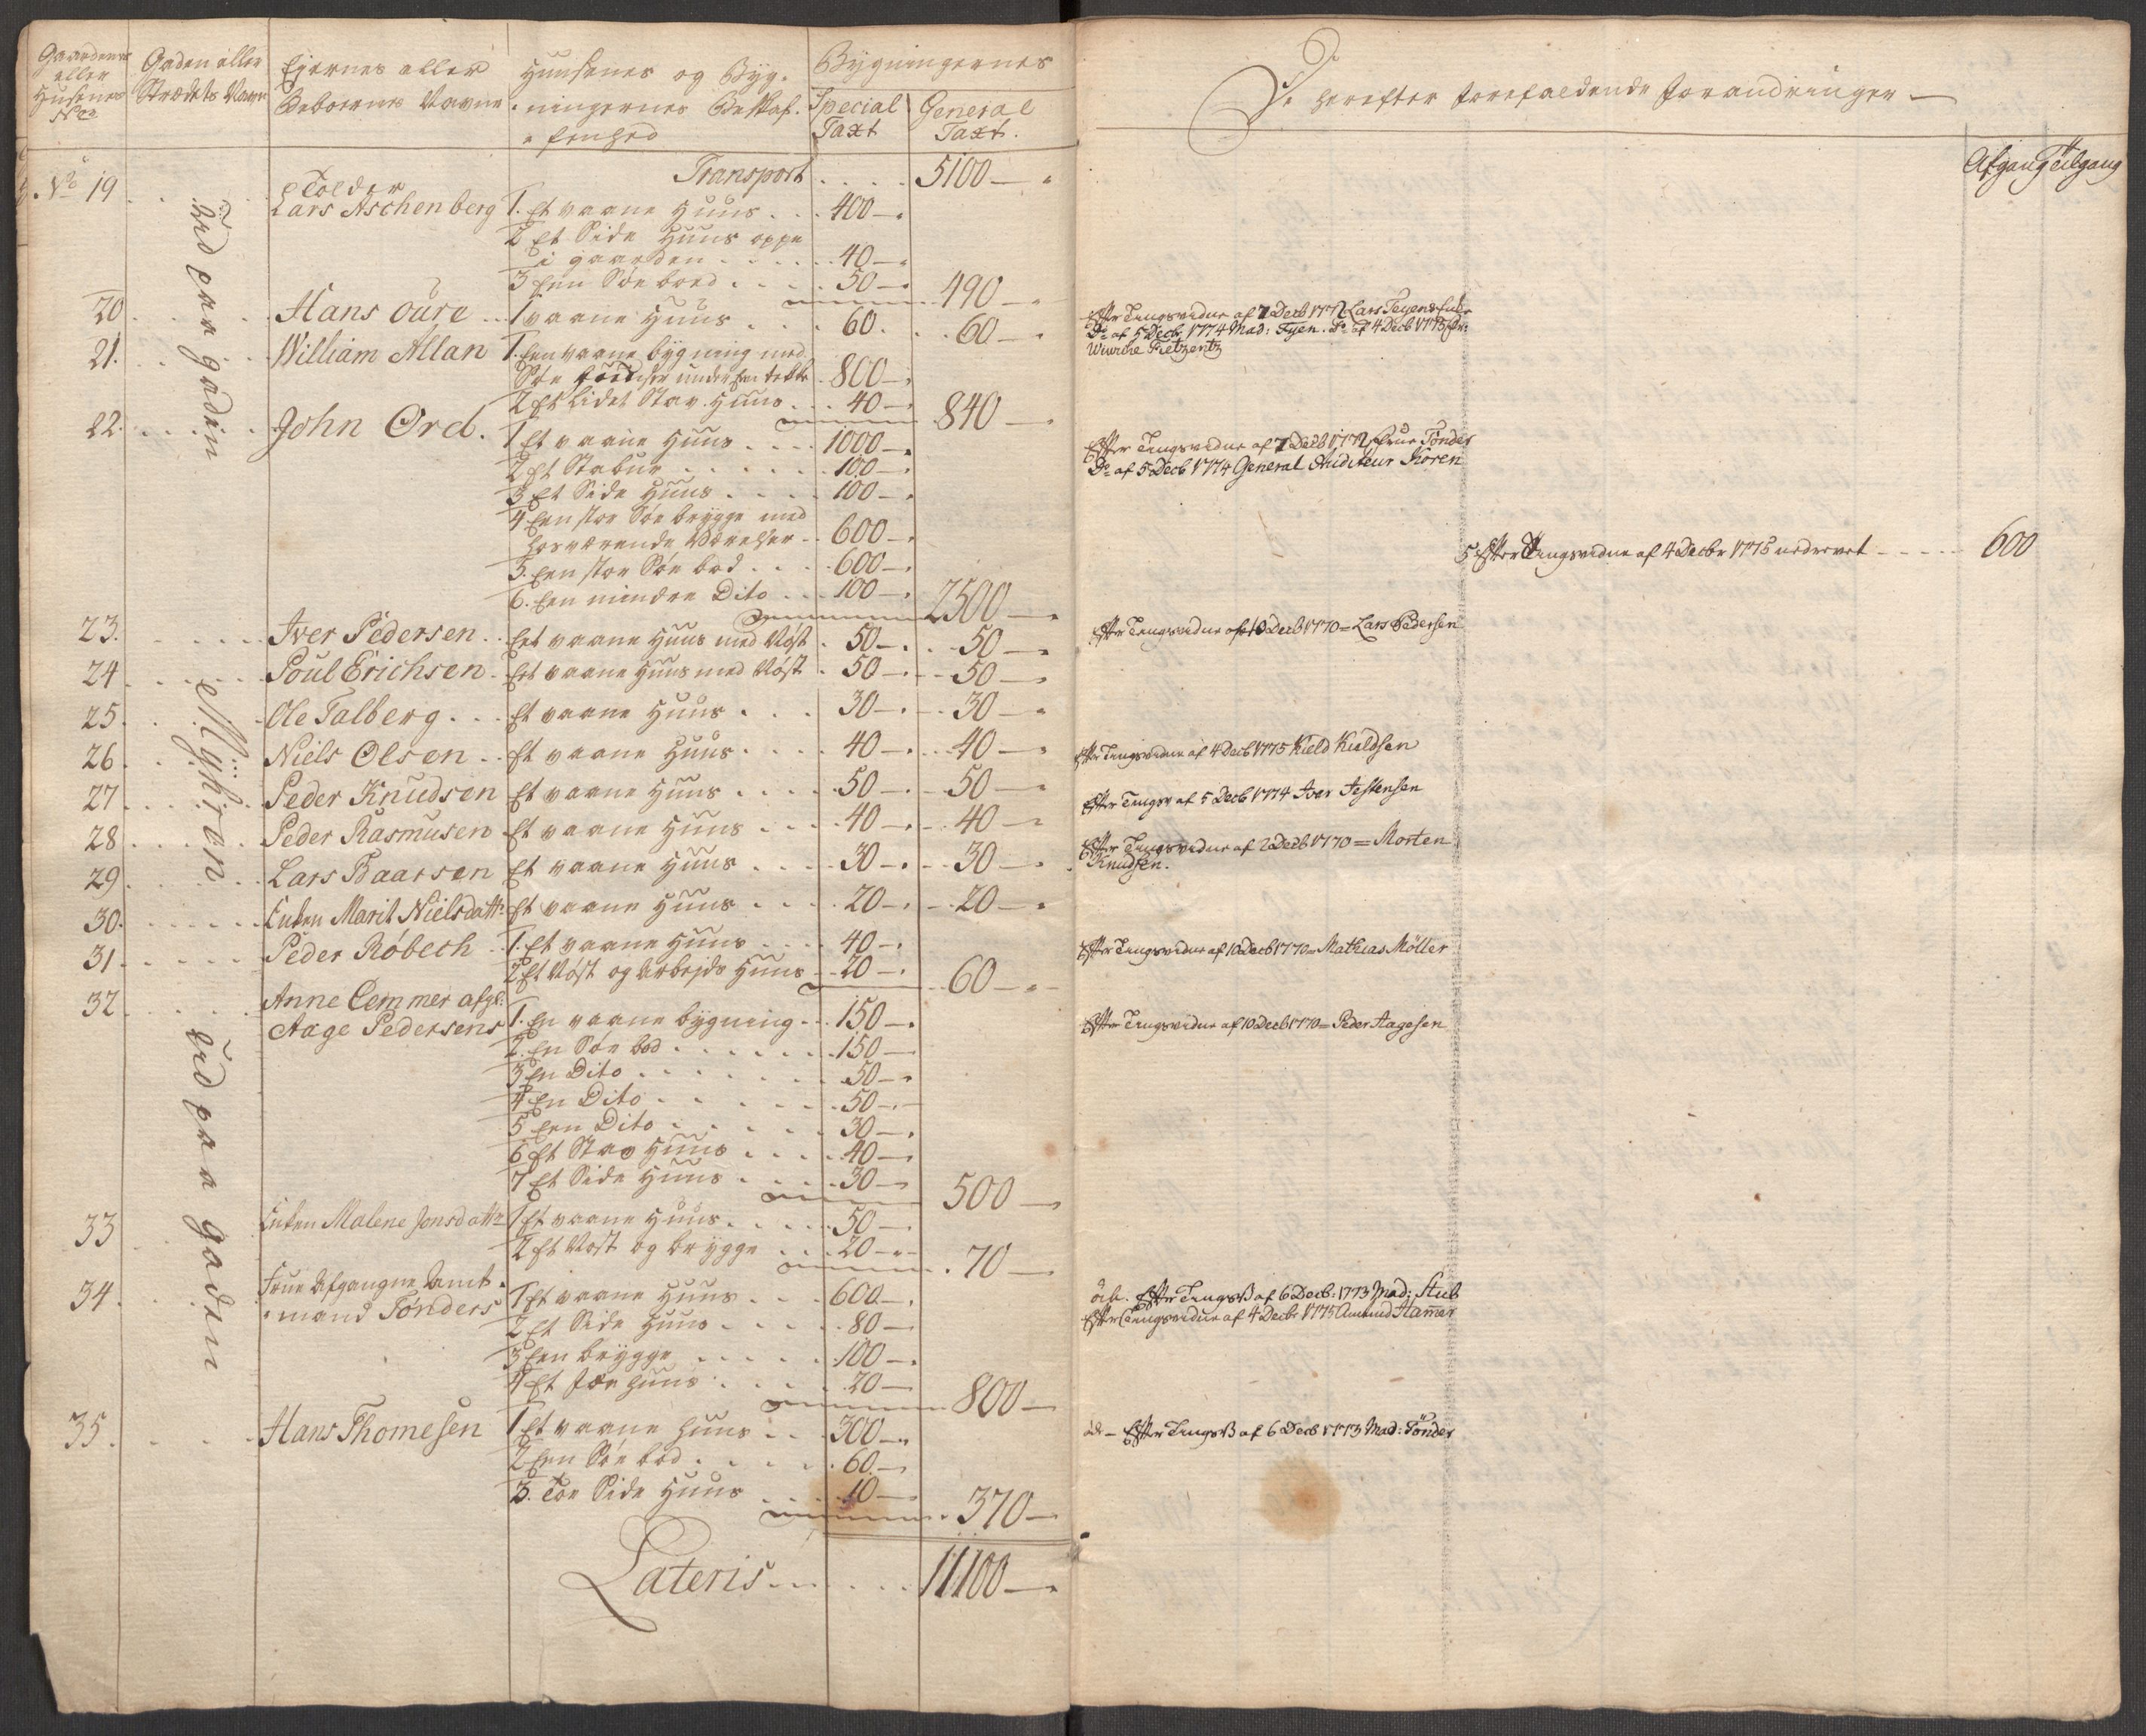 Gaardenes
eller
Husenes
No
Gaden eller
Strædets Navn
Ejernes eller
Beboernes Navne
Huusenes og Byg-
ningernes Beskaf-
fenhed
Bygningernes
Special
Taxt
General
Taxt.
Transport .... 5100 —
No 19
Ud paa gaden
Tolder
Lars Aschenberg
1. Et vaane Huus ... 400 —
2 Et Side Huus oppe
i gaarden ..... 40 —
3 Een Søe boed .... 50 — 490 —
20 Hans Oure .. 1 vaane Huus ... 60. .. 60 —
21. William Allan 1. Een vaane bygning med
Søe boed under Een tekke 800 —
2 Et Lidet Stav Huus ... 40 — 840 —
22. John Ord. 1 Et vaane Huus .... 1000 —
2 Et Stabur ...... 100 —
3 Et Side Huus .... 100 —
4 Een stor Søe brygge med
hosværende Værelser .. 600 —
5. Een stor Søe bod ... 600 —
6. Een mindre Dito ... 100 — 2500 —
23. Iver Pedersen .. Eet vaane Huus med Nøst . 50 — .. 50 —
Myhren
24 Poul Erichsen . Eet vaane Huus med Nøst . 50 — .. 50 —
25. Ole Talberg ... Et vaane Huus ... 30 — .. 30 —
26. Niels Olsen .. Et vaane Huus .... 40 — .. 40 —
27 Peder Knudsen Et vaane Huus .... 50 — .. 50 —
28 Peder Rasmusen Et vaane Huus ... 40 — .. 40 —
29 Lars Baarsen Et vaane Huus .... 30 — .. 30 —
30. Enken Marit Nielsdattr Et vaane Huus ... 20 — .. 20 —
31 Peder Røbech .. 1. Et vaane Huus .... 40 —
2 Et Nøst og Arbejds Huus .. 20 — 60 —
32 Anne Cemmer afgl:
Aage Pedersens
Ud paa gaden
1. En vaane bygning ... 150 —
2. En Søe bod ...... 150 —
3 En Dito ....... 50 —
4 En Dito ...... 50 —
5 Een Dito ...... 30 —
6 Et Stav Huus .... 40 —
7 Et Side Huus .... 30 — 500 —
33 Enken Malene Jonsdattr 1 Et vaane Huus ..... 50 —
2 Et Nøst og brygge ... 20 — 70 —
34. Frue Afgangne Amt-
mand Tønders
1 Et vaane Huus ... 600 —
2 Et Side Huus .... 80 —
3 Een brygge ..... 100 —
4 Et Huus .... 20 — 800 —
35. Hans Thomesen 1 Et vaane huus ... 300 —
2 Een Søe bod ..... 60 —
3. Toe Side Huus .... 10 — 370 —
Lateris ...... 11100 —
De herefter forefaldende forandringer —
Afgang Tilgang
Efter Tingsvidne af 7 Decb 1772 Lars
Do af 5 Decb 1774 Mad: Fyen. Do af 4 Decb 1775
Efter Tingsvidne af 7 Decb 1772 Frue Tønder
Do af 5 Decb 1774 General Auditeur Koren
5 Efter Tingsvidne af 4 Decbr 1775 nedrevet ..... 600
Efter Tingsvidne af 10 Decb 1770 = Lars Pedersen
Efter Tingsvidne af 4 Decb 1775 Kield Kieldsen
Efter Tingsv af 5 Decb 1774 Iver Jestensen
Efter Tingsvidne af 2 Decb 1770 = Morten
Knudsen.
Efter Tingsvidne af 10 Decb 1770 = Mathias Møller
Efter Tingsvidne af 10 Decb 1770 = Peder Aagesen
Efter Tingsv af 6 Decb: 1773 Mad: Stub
Efter Tingsvidne af 4 Decbr 1775 Amtmd Hammer
Efter Tingsv af 6 Decb 1773 Mad: Tönder